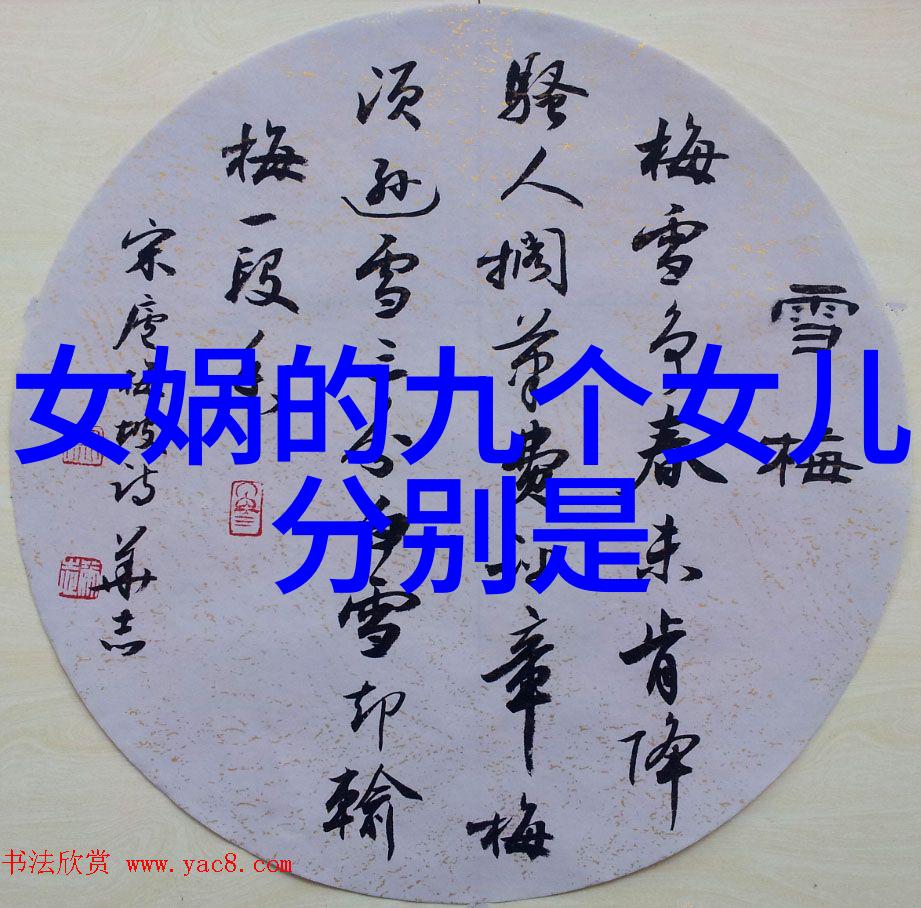 女娲的九个女儿
分别是
雪梅
梅雪争春未肯降
骚人搁笔费评章梅
须逊雪三分白雪却输
梅一段香
宋卢梅坡诗 华志
书法欣赏 www.yac8.com